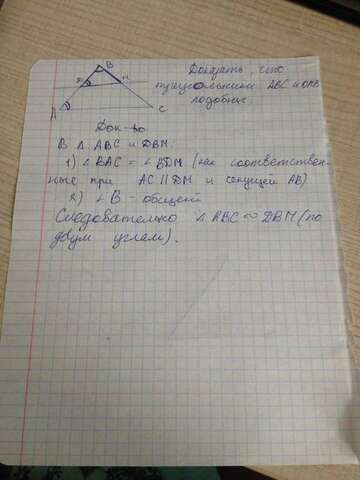 B
Доказать, что
D M треугольники ABC и DMB
A C подобны.
Док-во
В Δ ABC и DBM.
1) ∠ BAC = ∠ BDM (как соответствен-
ные при AC || DM и секущей AB)
2) ∠ B - общий
Следовательно Δ ABC ∾ DBM (по
двум углам).